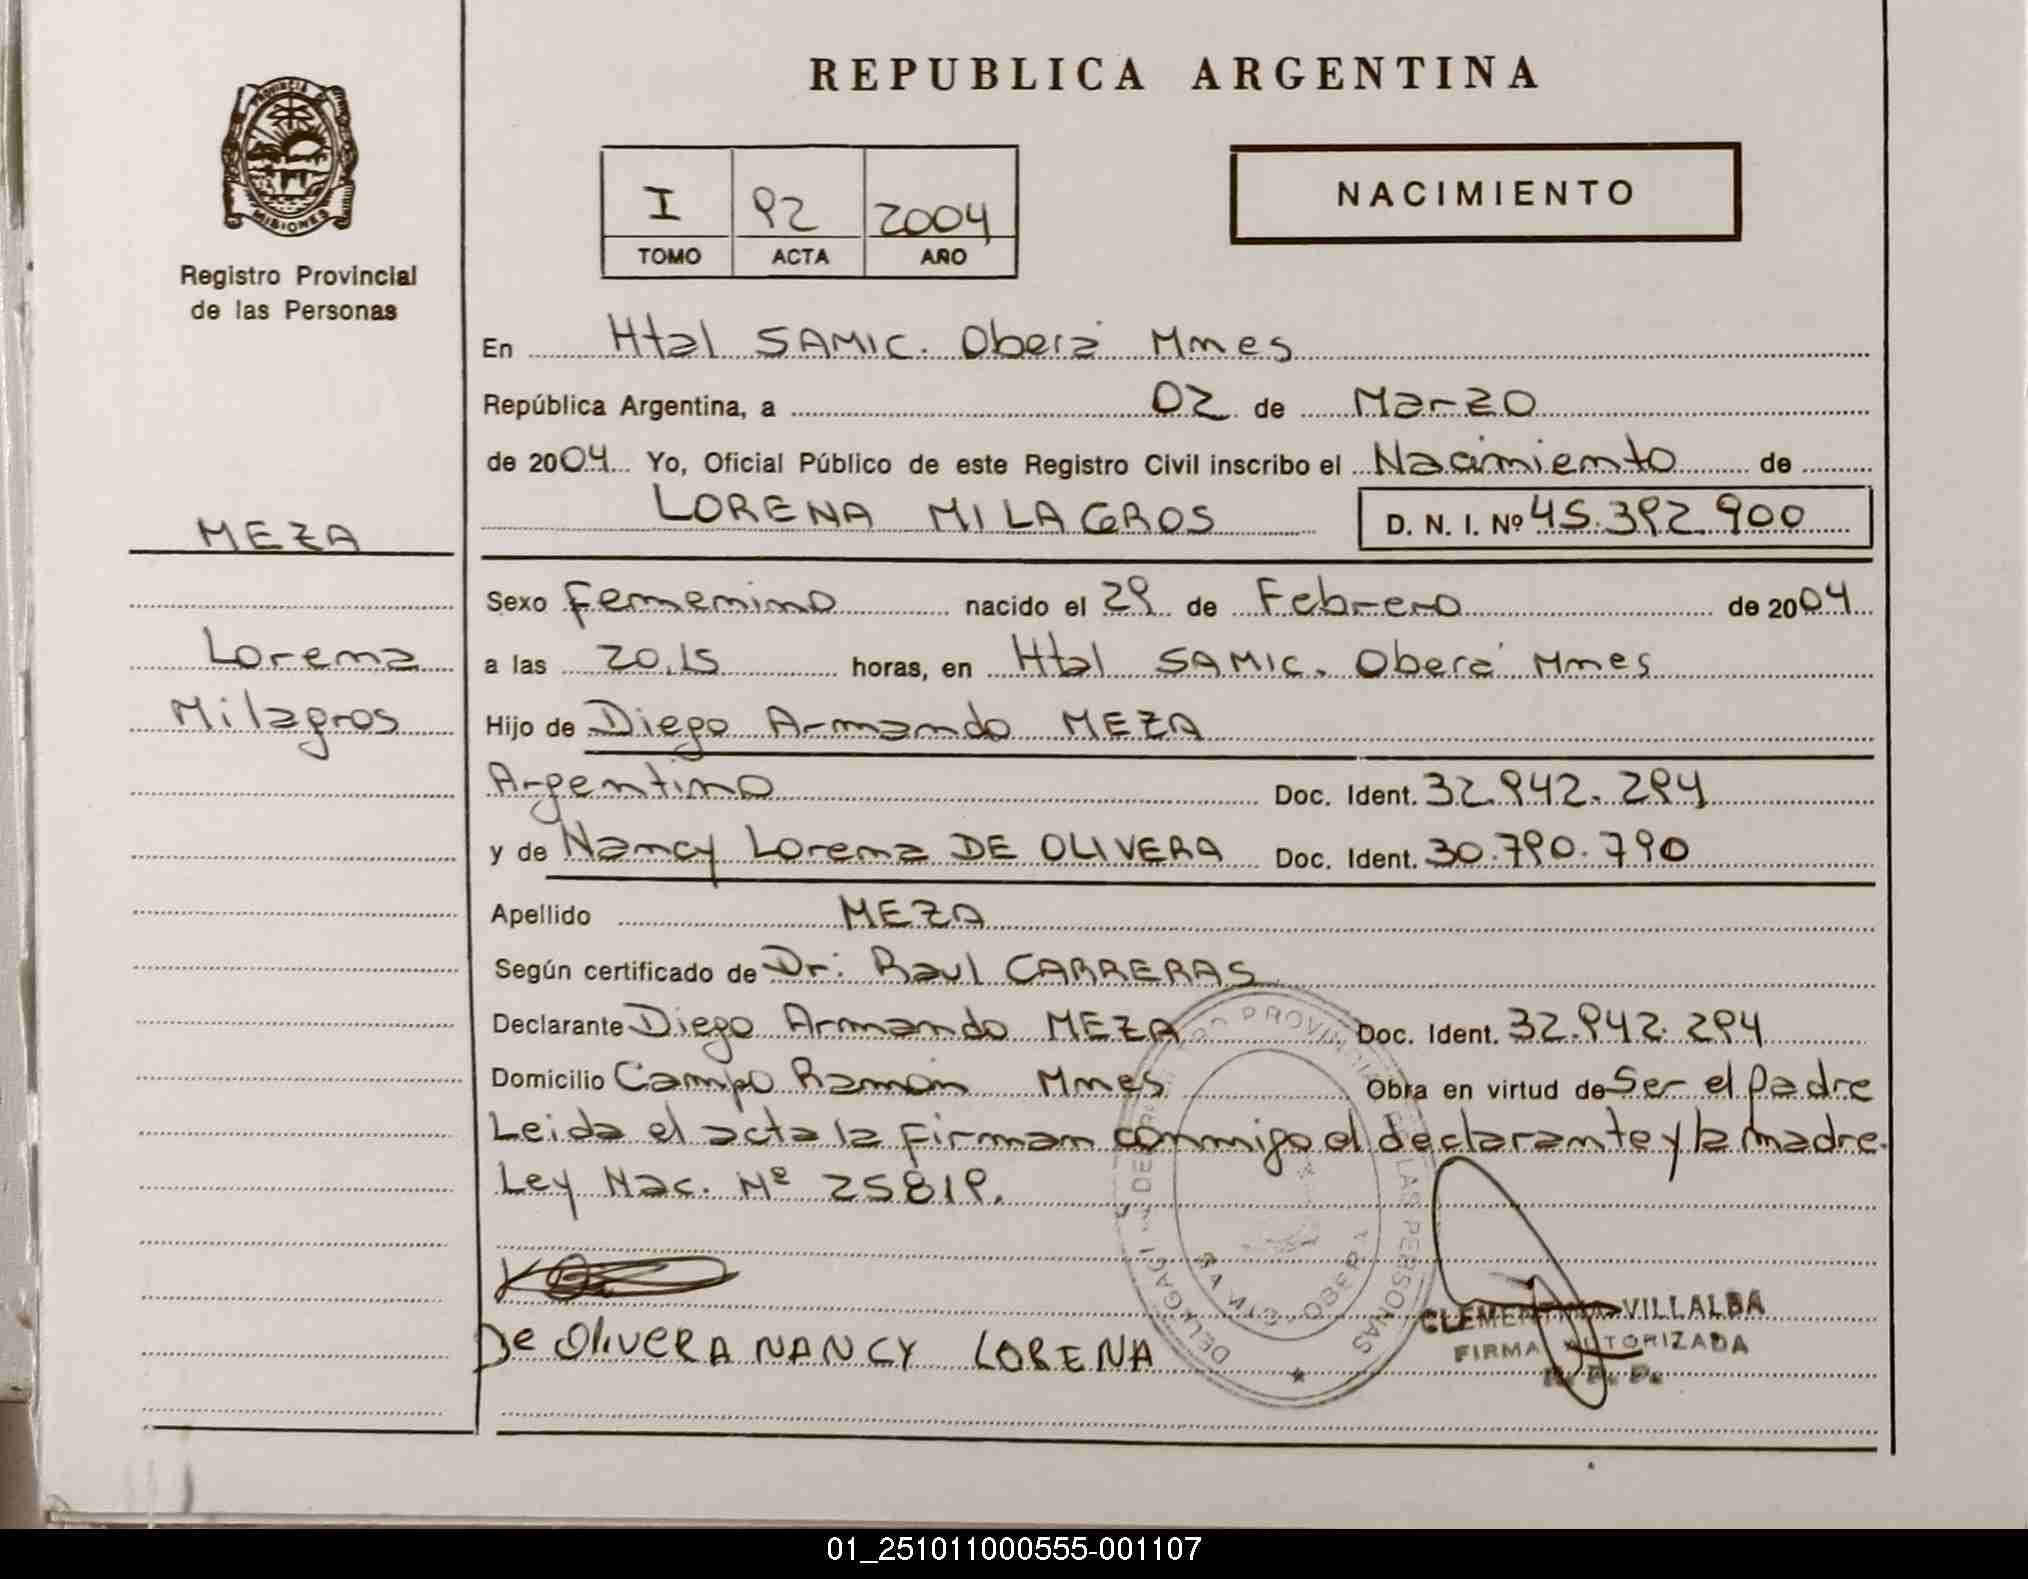 REPUBLICA ARGENTINA
PROVINCIA DE
MISIONES
Registro Provincial
de las Personas
I 92 2004
TOMO ACTA AÑO
NACIMIENTO
En Htal SAMIC. Oberá Mnes
República Argentina, a 02 de Marzo
de 2004 Yo, Oficial Público de este Registro Civil inscribo el Nacimiento de
LORENA MILAGROS D. N. I. Nº 45.392.900
MEZA
Lorena
Milagros
Sexo Femenino nacido el 29 de Febrero de 2004
a las 20.15 horas, en Htal SAMIC. Oberá Mnes
Hijo de Diego Armando MEZA
Argentino Doc. Ident. 32.942.294
y de Nancy Lorena DE OLIVERA Doc. Ident. 30.790.790
Apellido MEZA
Según certificado de Dr: Raul CARRERAS
Declarante Diego Armando MEZA Doc. Ident. 32.942.294
Domicilio Campo Ramón Mnes Obra en virtud de Ser el Padre
Leida el acta la firman conmigo el declarante y la madre.
Ley Nac. Nº 25819.
De OliVERA NANCY LORENA
CLEMENTINA VILLALBA
FIRMA AUTORIZADA
R. P. P.
01_251011000555-001107